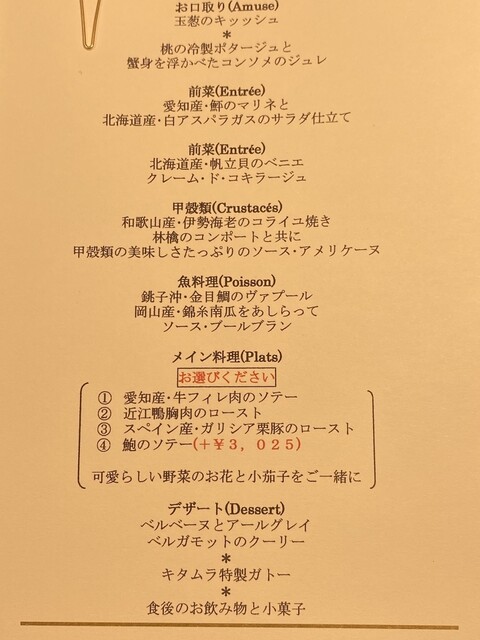 お口取り(Amuse)
玉葱のキッッシュ
*
桃の冷製ポタージュと
蟹身を浮かべたコンソメのジュレ
前菜(Entrée)
愛知産･鰤のマリネと
北海道産･白アスパラガスのサラダ仕立て
前菜(Entrée)
北海道産･帆立貝のベニエ
クレーム･ド･コキラージュ
甲殻類(Crustacés)
和歌山産･伊勢海老のコライユ焼き
林檎のコンポートと共に
甲殻類の美味しさたっぷりのソース･アメリケーヌ
魚料理(Poisson)
銚子沖･金目鯛のヴァプール
岡山産･錦糸南瓜をあしらって
ソース･ブールブラン
メイン料理(Plats)
お選びください
① 愛知産･牛フィレ肉のソテー
② 近江鴨胸肉のロースト
③ スペイン産･ガリシア栗豚のロースト
④ 鮑のソテー(＋￥３，０２５)
可愛らしい野菜のお花と小茄子をご一緒に
デザート(Dessert)
ベルベーヌとアールグレイ
ベルガモットのクーリー
*
キタムラ特製ガトー
*
食後のお飲み物と小菓子